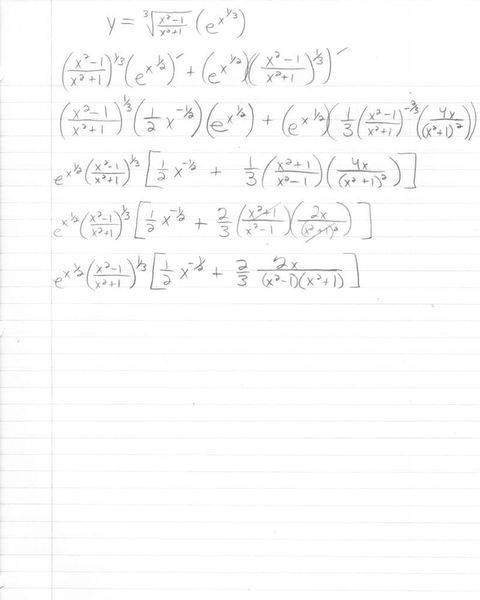 y = ∛((x²-1)/(x²+1)) (e^(x^(1/3)))
((x²-1)/(x²+1))^(1/3) (e^(x^(1/2)))′ + (e^(x^(1/2)))(((x²-1)/(x²+1))^(1/3))′
((x²-1)/(x²+1))^(1/3) (1/2 x^(-1/2))(e^(x^(1/2))) + (e^(x^(1/2)))(1/3 ((x²-1)/(x²+1))^(-2/3) (4x/(x²+1)²))
e^(x^(1/2)) ((x²-1)/(x²+1))^(1/3) [1/2 x^(-1/2) + 1/3 ((x²+1)/(x²-1))(4x/(x²+1)²)]
e^(x^(1/2)) ((x²-1)/(x²+1))^(1/3) [1/2 x^(-1/2) + 2/3 ((x²+1)/(x²-1))(2x/(x²+1)²)]
e^(x^(1/2)) ((x²-1)/(x²+1))^(1/3) [1/2 x^(-1/2) + 2/3 2x/((x²-1)(x²+1))]